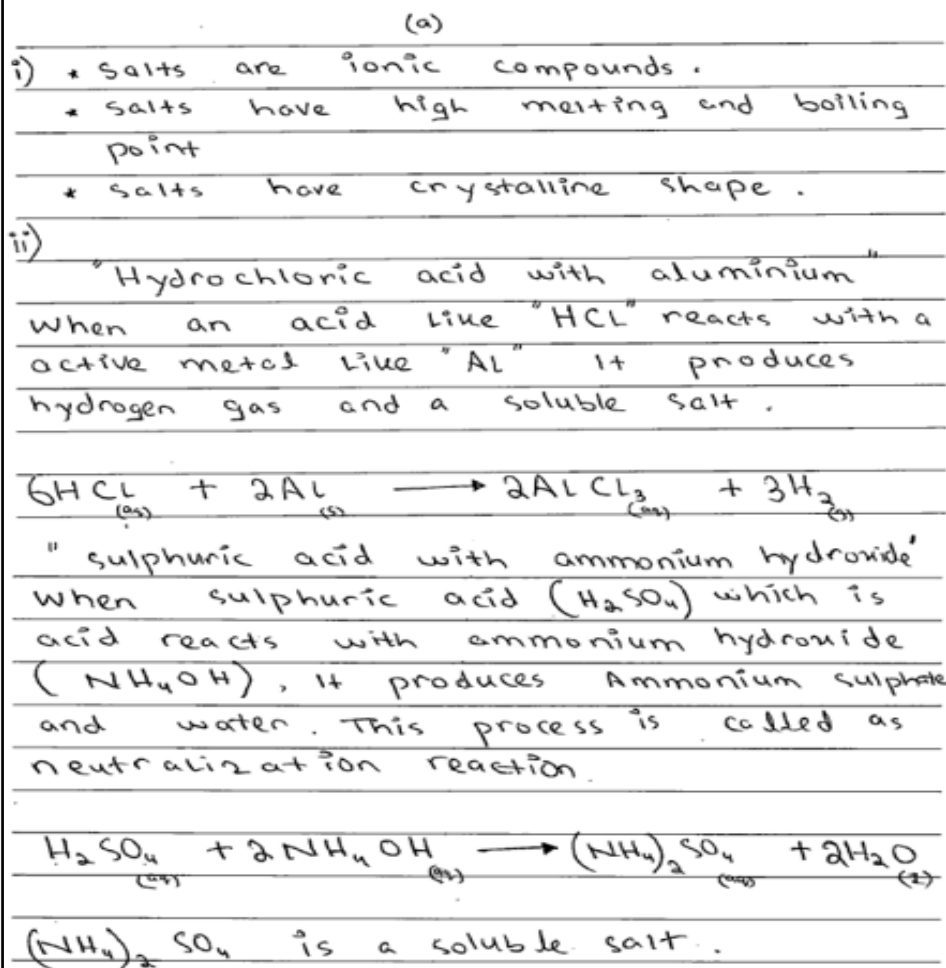 (a)
i) * Salts are ionic compounds.
* Salts have high melting and boiling
point
* Salts have crystalline shape.
ii)
"Hydrochloric acid with aluminium"
When an acid like "HCl" reacts with a
active metal like "Al" It produces
hydrogen gas and a soluble salt.
6HCl(aq) + 2Al(s) → 2AlCl₃(aq) + 3H₂(g)
"sulphuric acid with ammonium hydroxide'
When sulphuric acid (H₂SO₄) which is
acid reacts with ammonium hydroxide
(NH₄OH), It produces Ammonium sulphate
and water. This process is called as
neutralization reaction.
H₂SO₄(aq) + 2NH₄OH(aq) → (NH₄)₂SO₄(aq) + 2H₂O(l)
(NH₄)₂SO₄ is a soluble salt.